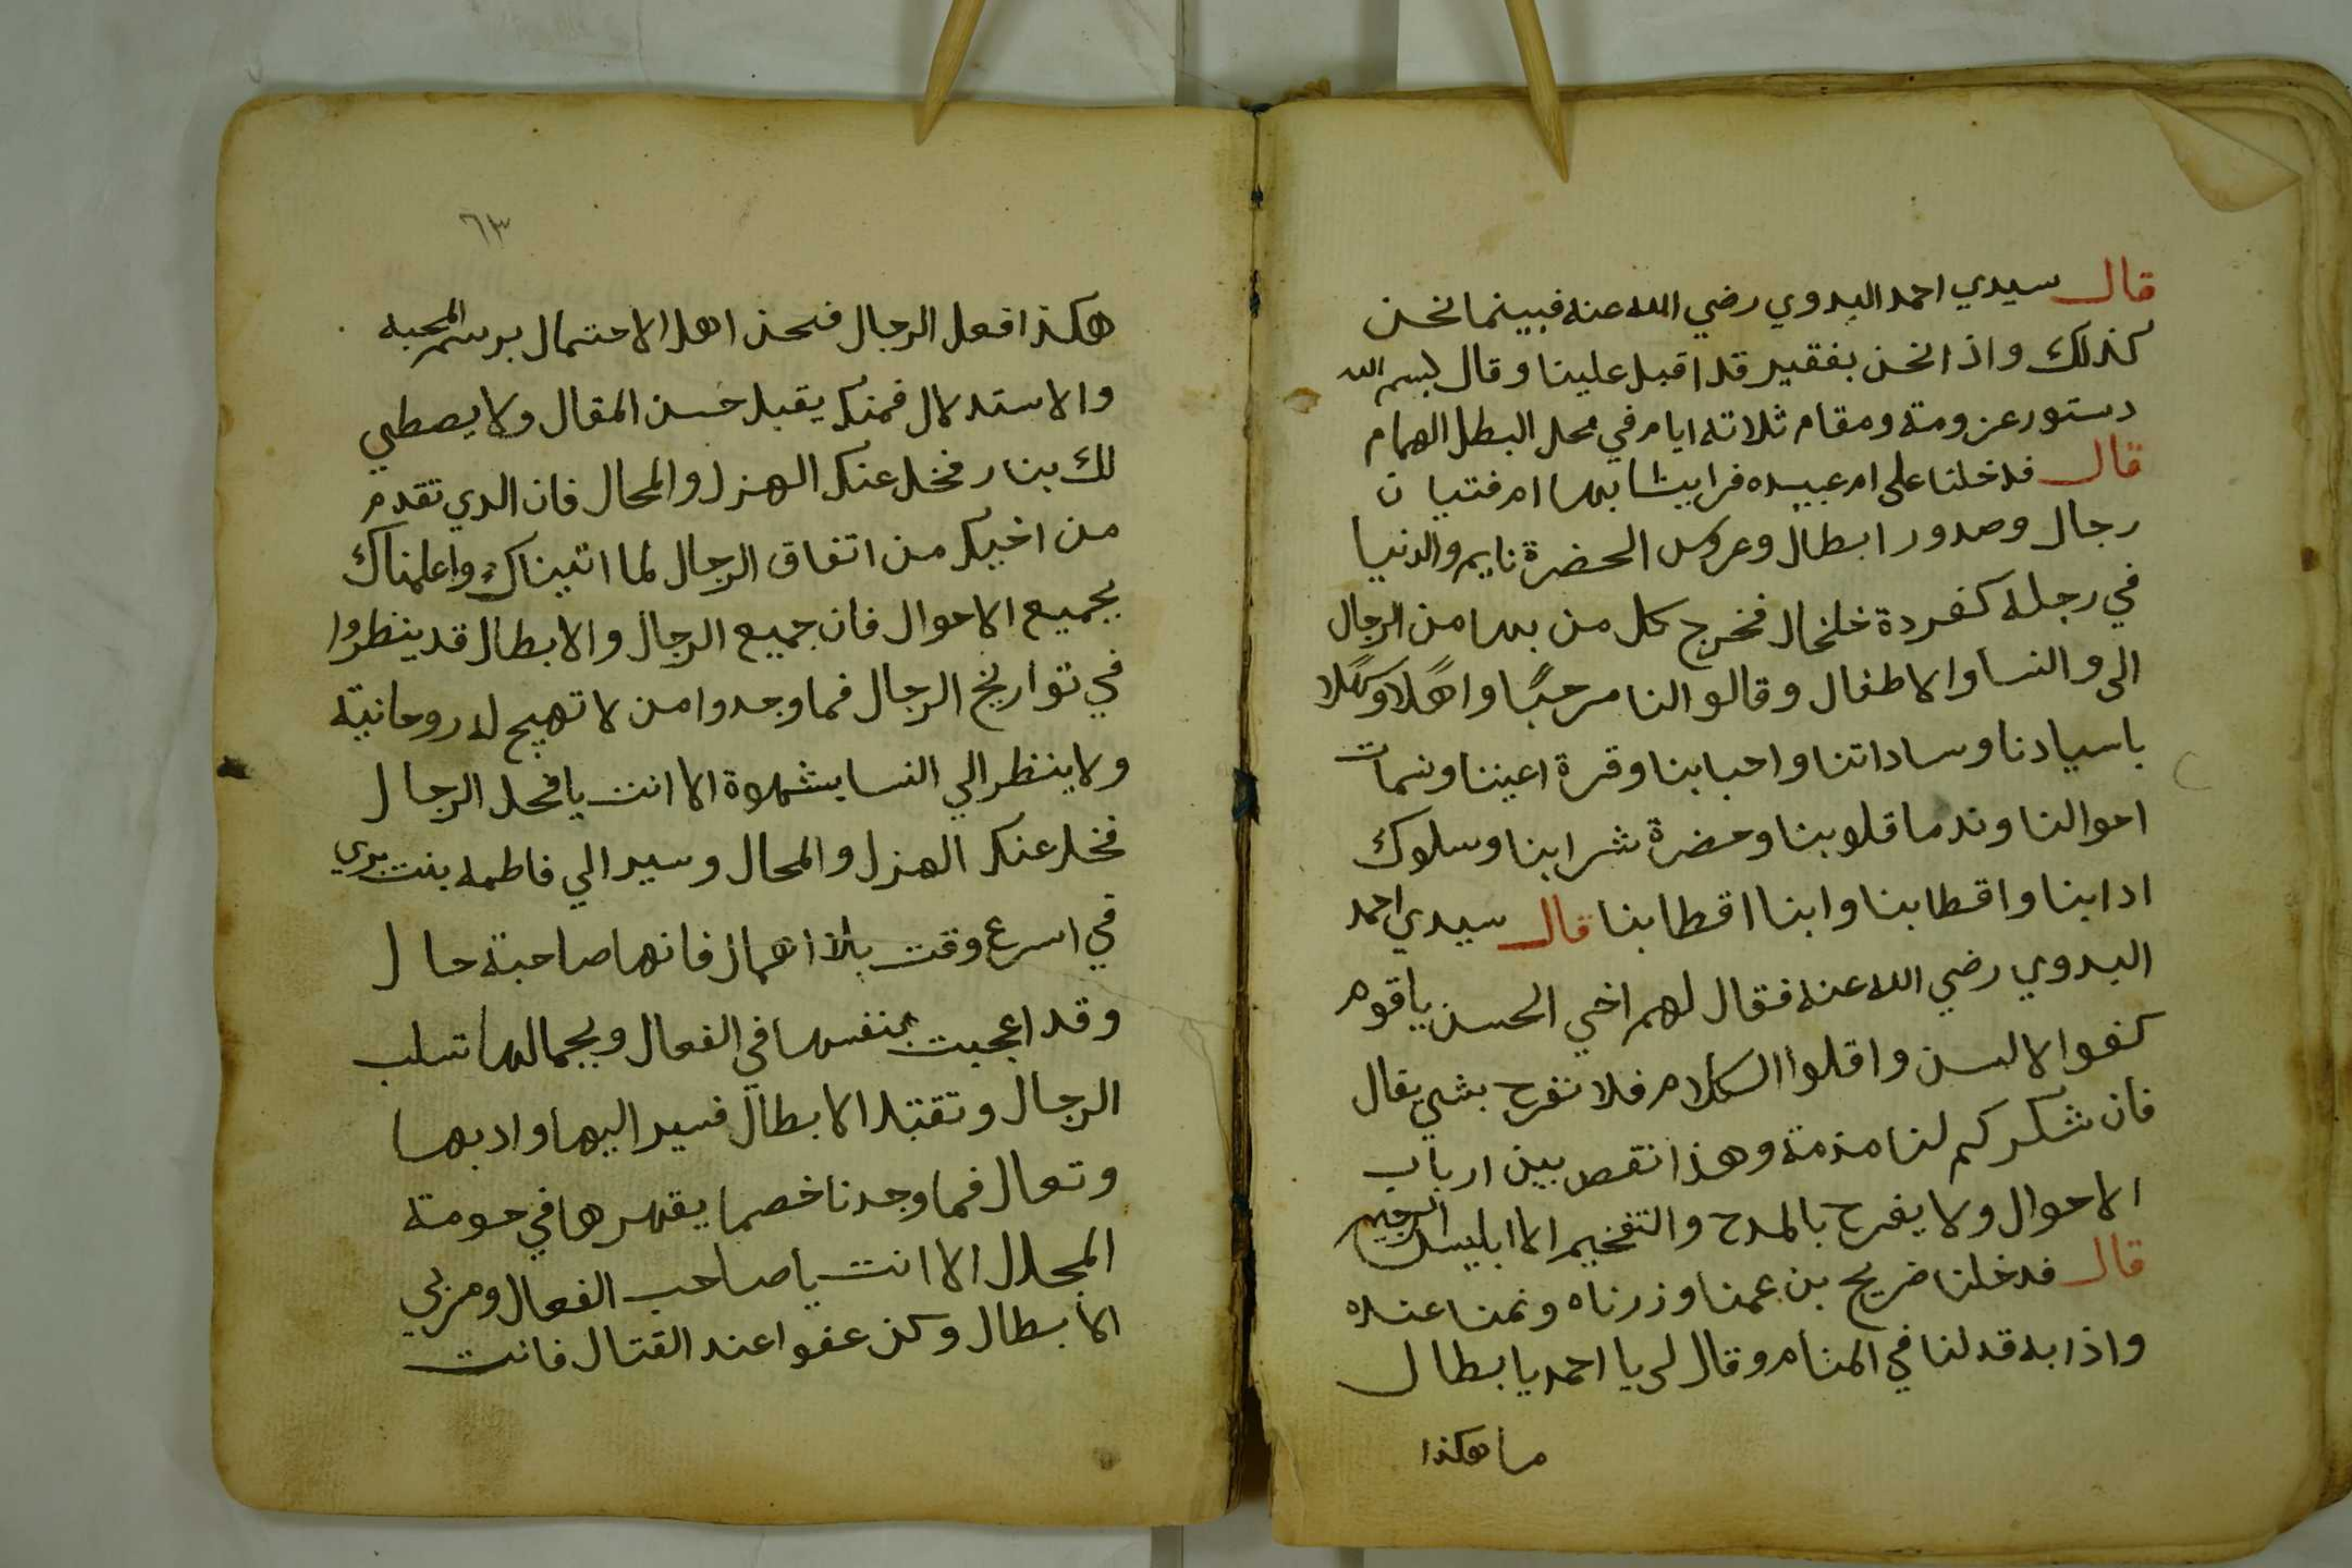 قال سيدي احمد البدوي رضي الله عنه فبينما نحن
كذلك واذا نحن بفقير قد اقبل علينا وقال بسم الله
دستور عزومة ومقام ثلاثة ايام في محل البطل الهمام
قال فدخلنا على ام عبيده فراينا بها ام فتيان
رجال وصدور ابطال وعروس الحضرة نايم والدنيا
في رجله كفردة خلخال فخرج كل من بها من الرجال
الى والنسا والاطفال وقالوا لنا مرحبًا واهلًا وسهلًا
باسيادنا وساداتنا واحبابنا وقرة اعيننا ونسمات
احوالنا وندما قلوبنا وحضرة شرابنا وسلوك
ادابنا واقطابنا وابنا اقطابنا قال سيدي احمد
البدوي رضي الله عنه فقال لهم اخي الحسن ياقوم
كفوا الالسن واقلوا الكلام فلا نفرح بشي يقال
فان شكركم لنا مذمة وهذا نقص بين ارباب
الاحوال ولا يفرح بالمدح والتفخيم الا ابليس الرجيم
قال فدخلنا ضريح بن عمنا وزرناه ونمنا عنده
واذا به قد لنا في المنام وقال لى يا احمد يا بطال
ما هكذا
٦٣
هكذا فعل الرجال فنحن اهل الاحتمال برسم المحبه
والاستدلال فمنك يقبل حسن المقال ولا يصطلي
لك بنار فخل عنك الهزل والمحال فان الدي تقدم
من اخيك من اتفاق الرجال لما اتيناك واعلمناك
بجميع الاحوال فان جميع الرجال والابطال قد ينظروا
في تواريخ الرجال فما وجدوا من لا تهيج له روحانية
ولا ينظر الي النسا بشهوة الا انت يا فحل الرجال
فخل عنك الهزل والمحال وسير الي فاطمه بنت بري
في اسرع وقت بلا اهمال فانها صاحبة حال
وقد اعجبت بنفسها في الفعال وبجمالها تسلب
الرجال وتقتل الابطال فسير اليها وادبها
وتعال فما وجدنا خصما يقهرها في حومة
المجلال الا انت يا صاحب الفعال ومربي
الابطال وكن عفوا عند القتال فانت